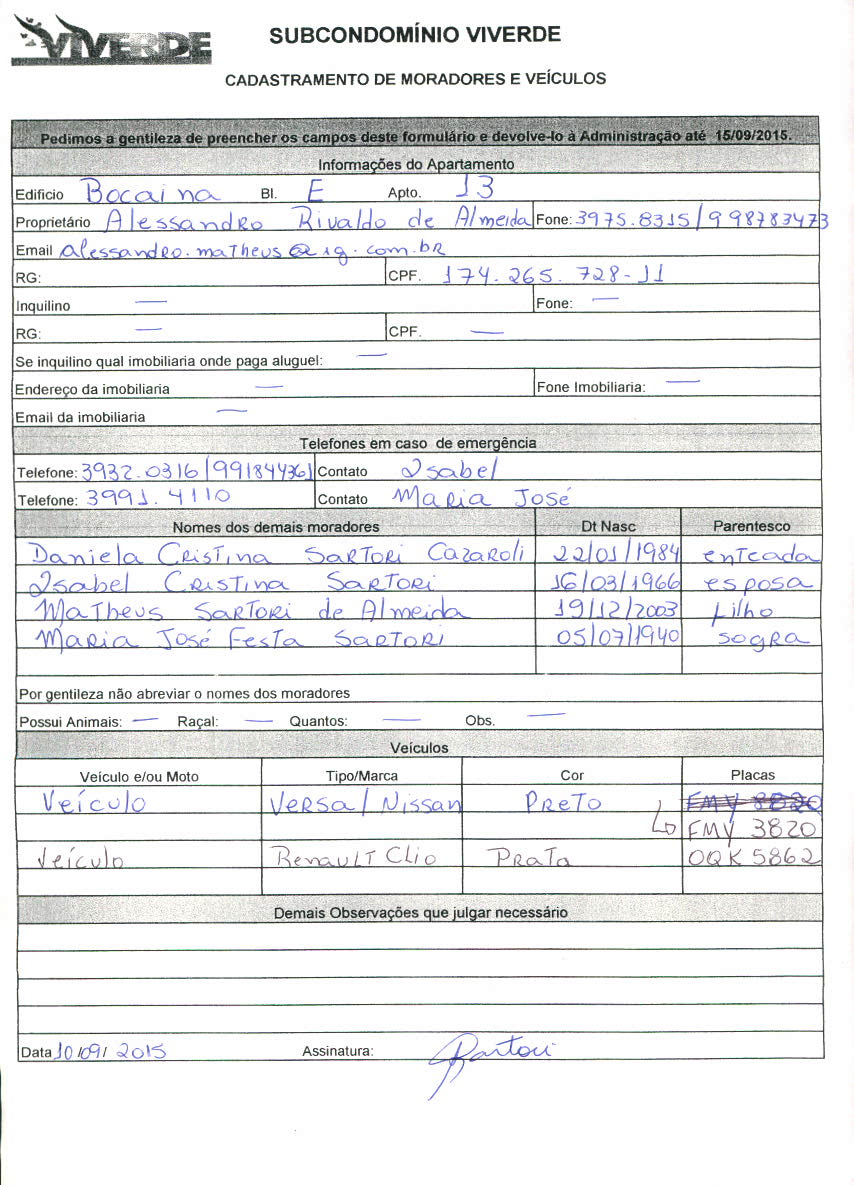 VIVERDE
SUBCONDOMÍNIO VIVERDE
CADASTRAMENTO DE MORADORES E VEÍCULOS
Pedimos a gentileza de preencher os campos deste formulário e devolve-lo à Administração até 15/09/2015.
Informações do Apartamento
Edificio Bocaina Bl. E Apto. 13
Proprietário Alessandro Rivaldo de Almeida Fone: 3975.8315/998783473
Email alessandro.matheus@ig.com.br
RG: CPF. 174.265.728-11
Inquilino — Fone: —
RG: — CPF. —
Se inquilino qual imobiliaria onde paga aluguel: —
Endereço da imobiliaria — Fone Imobiliaria: —
Email da imobiliaria —
Telefones em caso de emergência
Telefone: 3932.0316/991844361 Contato Isabel
Telefone: 3991.4110 Contato Maria José
Nomes dos demais moradores Dt Nasc Parentesco
Daniela Cristina Sartori Cazaroli 22/01/1984 enteada
Isabel Cristina Sartori 16/03/1966 esposa
Matheus Sartori de Almeida 19/12/2003 filho
Maria José Festa Sartori 05/07/1940 sogra
Por gentileza não abreviar o nomes dos moradores
Possui Animais: — Raçal: — Quantos: — Obs. —
Veículos
Veículo e/ou Moto Tipo/Marca Cor Placas
Veículo Versa/Nissan Preto FMY 8820
FMY 3820
Veículo Renault Clio Prata OQK 5862
Demais Observações que julgar necessário
Data 10/09/2015 Assinatura: Sartori